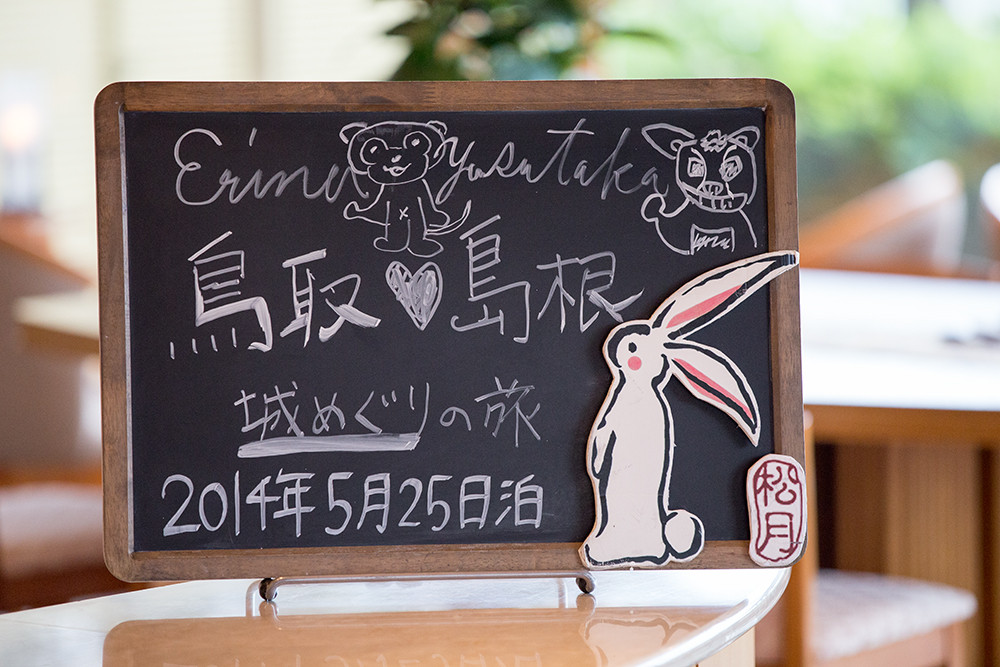 Erina Yasutaka
鳥取 島根
城めぐりの旅
2014年5月25日泊
松月